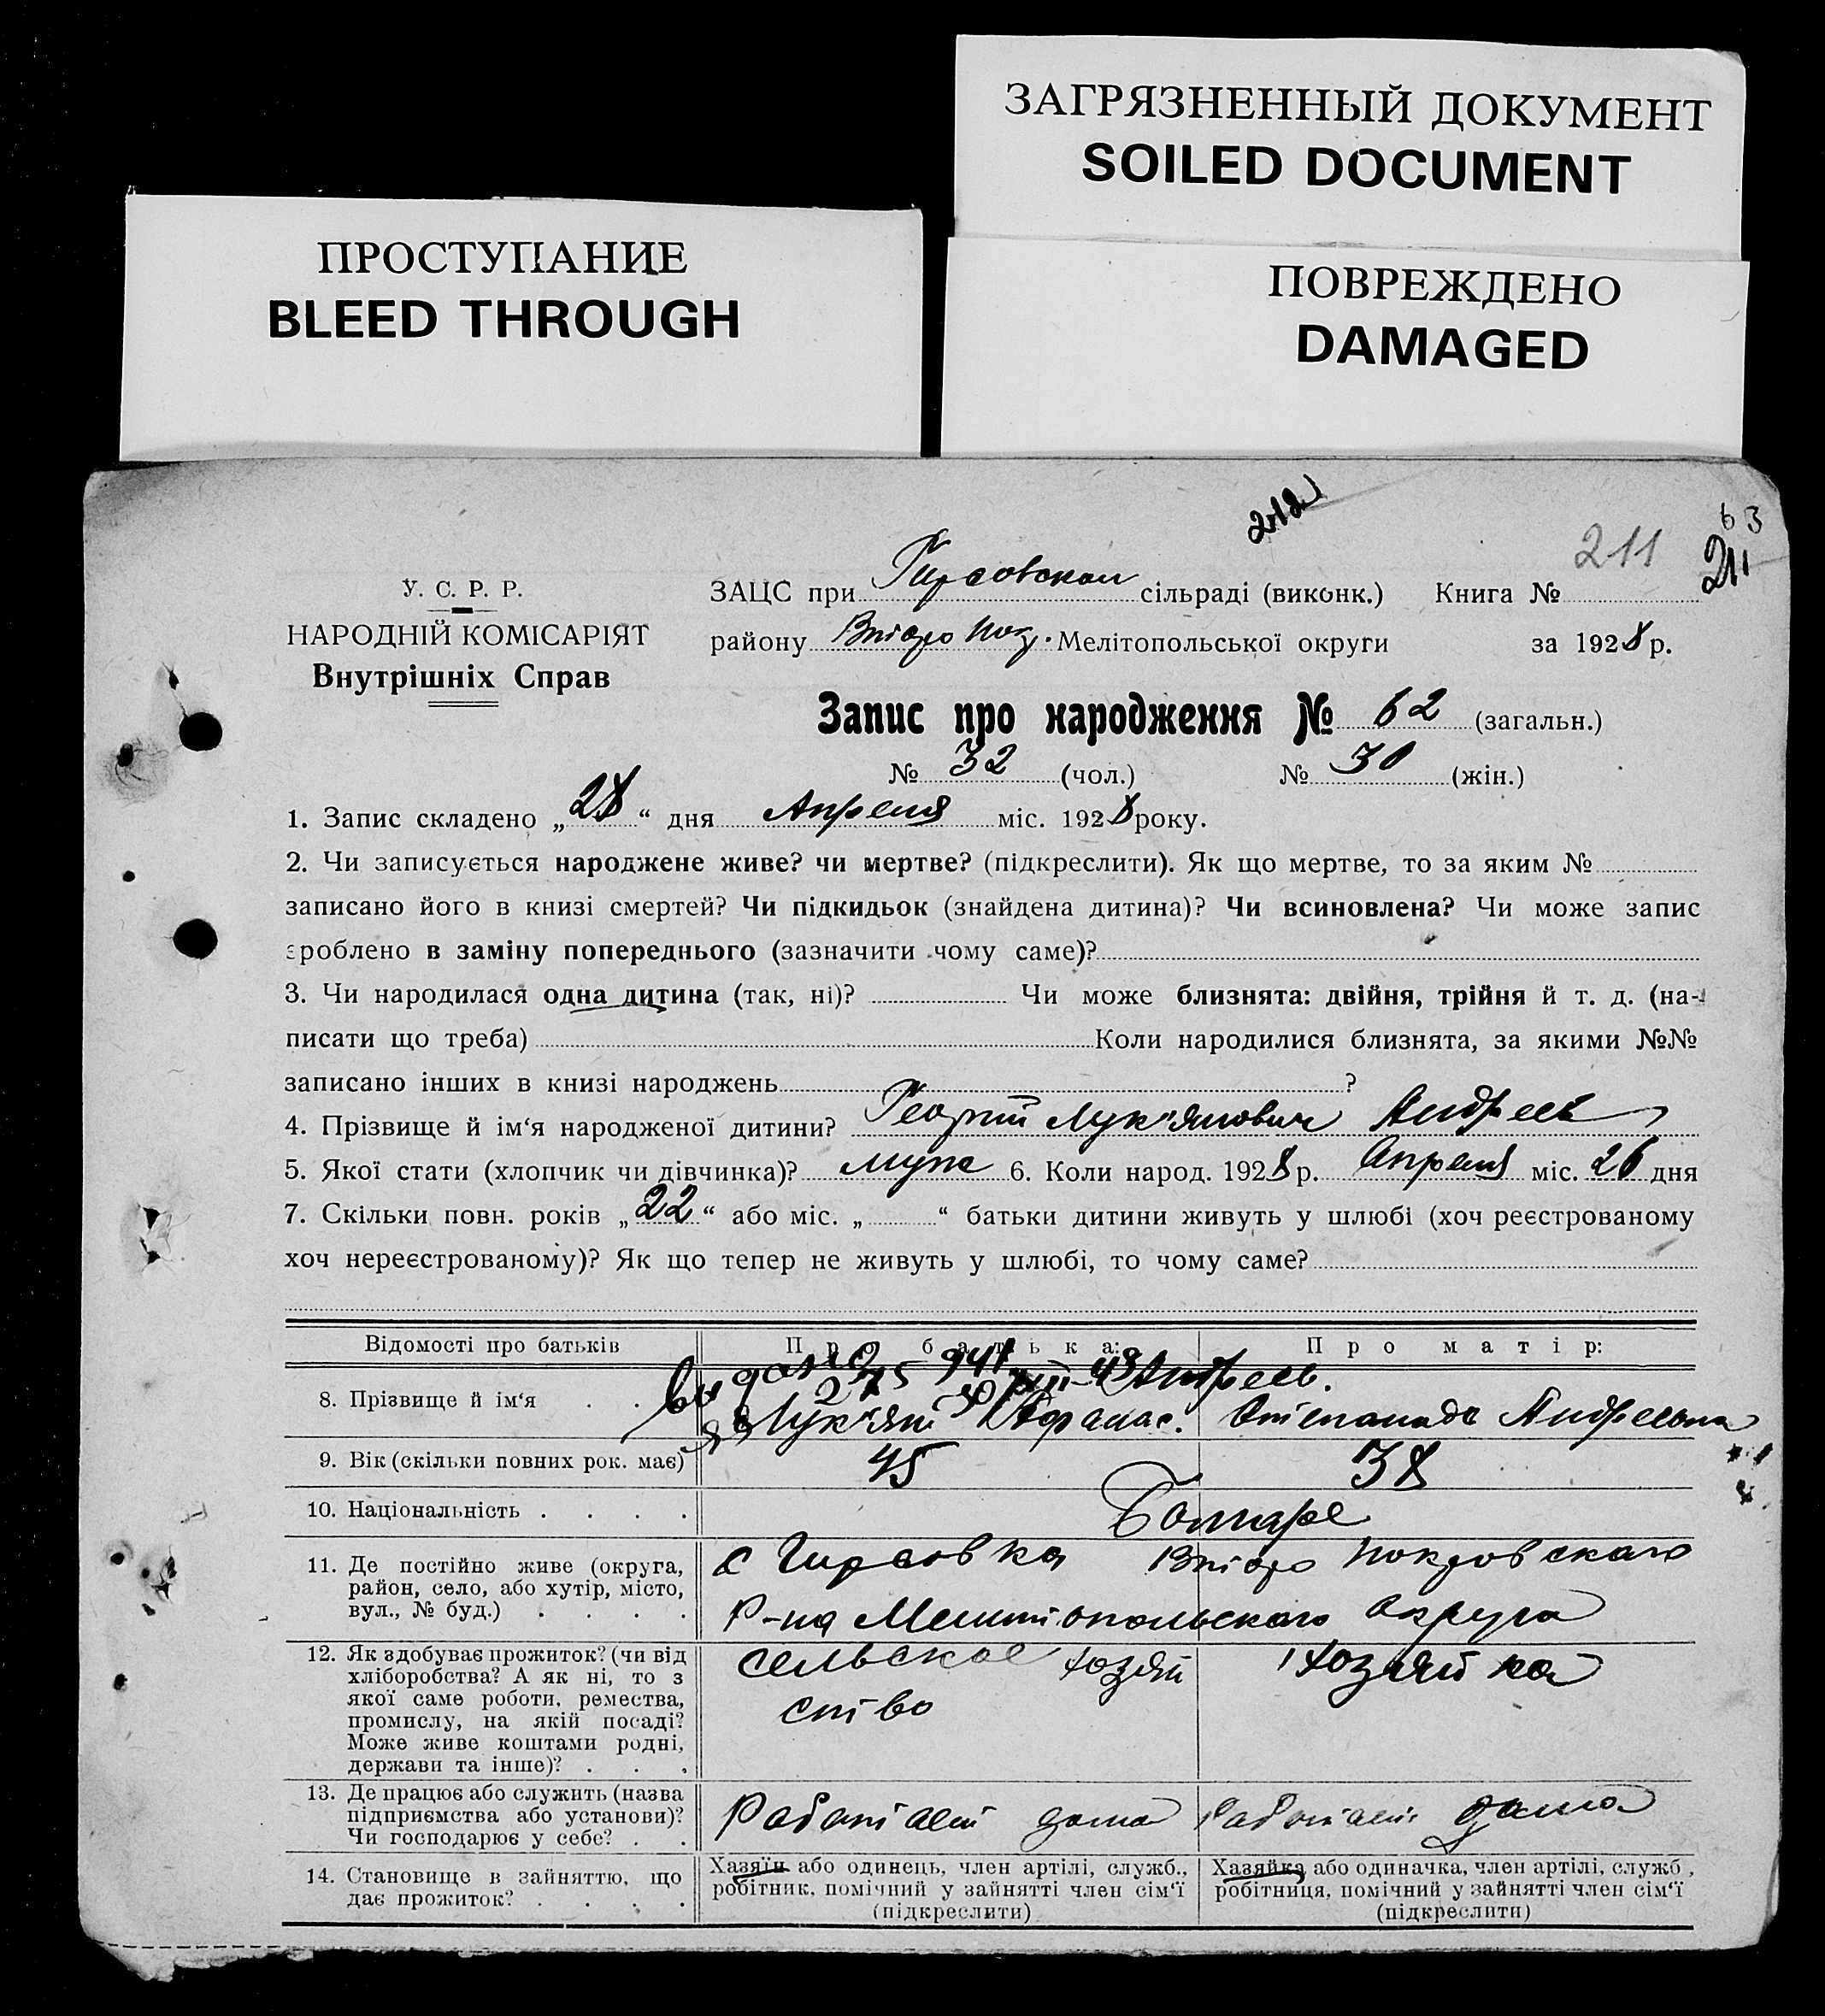 ЗАГРЯЗНЕННЫЙ ДОКУМЕНТ
SOILED DOCUMENT
ПРОСТУПАНИЕ
BLEED THROUGH
ПОВРЕЖДЕНО
DAMAGED
212
63
211
211
У. С. Р. Р.
НАРОДНІЙ КОМІСАРІЯТ
Внутрішніх Справ
ЗАЦС при Гирсовском сільраді (виконк.) Книга №
району Второ Пок. Мелітопольської округи за 1928 р.
Запис про народження № 62 (загальн.)
№ 32 (чол.) № 30 (жін.)
1. Запис складено „28“ дня Апреля міс. 1928 року.
2. Чи записується народжене живе? чи мертве? (підкреслити). Як що мертве, то за яким №
записано його в книзі смертей? Чи підкидьок (знайдена дитина)? Чи всиновлена? Чи може запис
зроблено в заміну попереднього (зазначити чому саме)?
3. Чи народилася одна дитина (так, ні)? Чи може близнята: двійня, трійня й т. д. (на-
писати що треба) Коли народилися близнята, за якими №№
записано інших в книзі народжень ?
4. Прізвище й ім‘я народженої дитини? Георгий Лук'янович Андреев
5. Якої стати (хлопчик чи дівчинка)? муж 6. Коли народ. 1928 р. Апреля міс. 26 дня
7. Скільки повн. років „22“ або міс. „ “ батьки дитини живуть у шлюбі (хоч реєстрованому
хоч нереєстрованому)? Як що тепер не живуть у шлюбі, то чому саме?
Відомості про батьків Про батька: Про матір:
8. Прізвище й ім‘я . . Андреев.
Лук'ян Афанас. Степанида Андреевна
9. Вік (скільки повних рок. має) 45 38
10. Національність . . . . Болгаре
11. Де постійно живе (округа, район, село, або хутір, місто, вул., № буд.) . . . .
с Гирсовка Второ Покровскаго
Р-на Мелитопольскаго округа
12. Як здобуває прожиток? (чи від хліборобства? А як ні, то з якої саме роботи, ремества, промислу, на якій посаді? Може живе коштами родні, держави та інше)? . . .
сельское хозяй
ство
Хозяйка
13. Де працює або служить (назва підприємства або установи)? Чи господарює у себе? . .
Работает дома Работает дома
14. Становище в зайняттю, що дає прожиток? . . . .
Хазяїн або одинець, член артілі, служб., робітник, помічний у зайнятті член сім‘ї (підкреслити)
Хазяйка або одиначка, член артілі, служб, робітниця, помічний у зайнятті член сім‘ї (підкреслити)